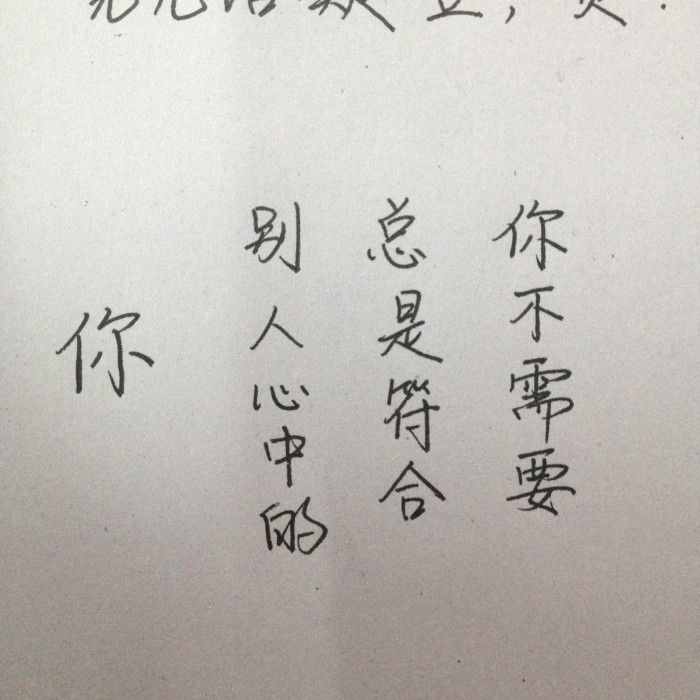 你不需要
总是符合
别人心中的
你